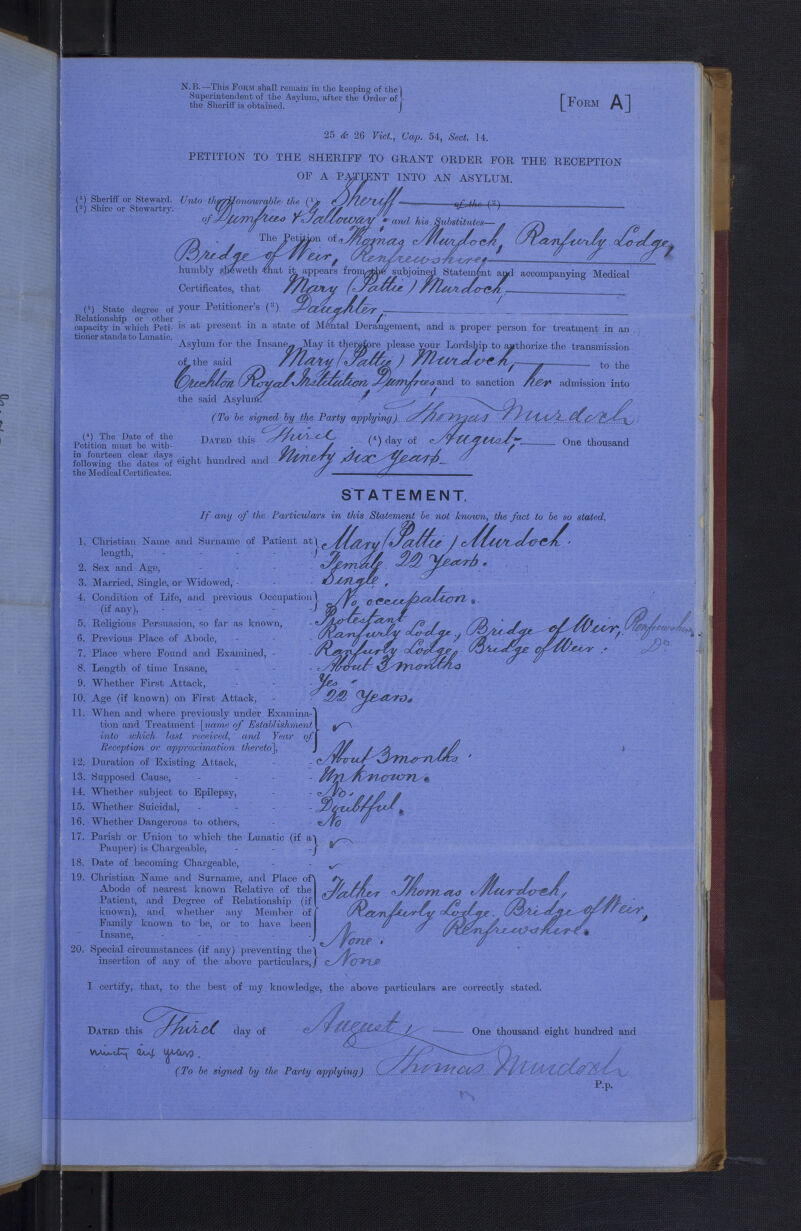 N.B.—This Form shall remain in the keeping of the
Superintendent of the Asylum, after the Order of
the Sheriff is obtained.
[Form A]
25 & 26 Vict., Cap. 54, Sect. 14.
PETITION TO THE SHERIFF TO GRANT ORDER FOR THE RECEPTION
OF A PATIENT INTO AN ASYLUM.
(¹) Sheriff or Steward.
(²) Shire or Stewartry.
Unto the Honourable the (¹) Sheriff of the (²)
of Dumfries & Galloway and his Substitutes—
The Petition of Thomas Murdoch, Ranfurly Lodge,
Bridge of Weir, Renfrewshire,
humbly sheweth that it appears from the subjoined Statement and accompanying Medical
Certificates, that Mary (Pattie) Murdoch,
(³) State degree of
Relationship or other
capacity in which Peti-
tioner stands to Lunatic.
your Petitioner's (³) Daughter,
is at present in a state of Mental Derangement, and a proper person for treatment in an
Asylum for the Insane. May it therefore please your Lordship to authorize the transmission
of the said Mary (Pattie) Murdoch, to the
Crichton Royal Institution, Dumfries, and to sanction her admission into
the said Asylum.
(To be signed by the Party applying) Thomas Murdoch
(⁴) The Date of the
Petition must be with-
in fourteen clear days
following the dates of
the Medical Certificates.
Dated this Third (⁴) day of August, One thousand
eight hundred and Ninety six years
STATEMENT.
If any of the Particulars in this Statement be not known, the fact to be so stated.
1. Christian Name and Surname of Patient at
length, - Mary (Pattie) Murdoch.
2. Sex and Age, - Female 22 Years.
3. Married, Single, or Widowed, - Single.
4. Condition of Life, and previous Occupation
(if any), - No occupation.
5. Religious Persuasion, so far as known, - Protestant
6. Previous Place of Abode, - Ranfurly Lodge, Bridge of Weir, Renfrewshire.
7. Place where Found and Examined, - Ranfurly Lodge, Bridge of Weir. Do
8. Length of time Insane, - About 3 months
9. Whether First Attack, - Yes
10. Age (if known) on First Attack, - 22 Years.
11. When and where previously under Examina-
tion and Treatment [name of Establishment
into which last received, and Year of
Reception or approximation thereto],
12. Duration of Existing Attack, - About 3 months.
13. Supposed Cause, - Unknown.
14. Whether subject to Epilepsy, - No.
15. Whether Suicidal, - Doubtful.
16. Whether Dangerous to others, - No
17. Parish or Union to which the Lunatic (if a
Pauper) is Chargeable, -
18. Date of becoming Chargeable, -
19. Christian Name and Surname, and Place of
Abode of nearest known Relative of the
Patient, and Degree of Relationship (if
known), and whether any Member of
Family known to be, or to have been
Insane, -
Father Thomas Murdoch,
Ranfurly Lodge, Bridge of Weir,
Renfrewshire.
None.
20. Special circumstances (if any) preventing the
insertion of any of the above particulars, None
I certify, that, to the best of my knowledge, the above particulars are correctly stated.
Dated this Third day of August, One thousand eight hundred and
ninety six years.
(To be signed by the Party applying) Thomas Murdoch
P.p.